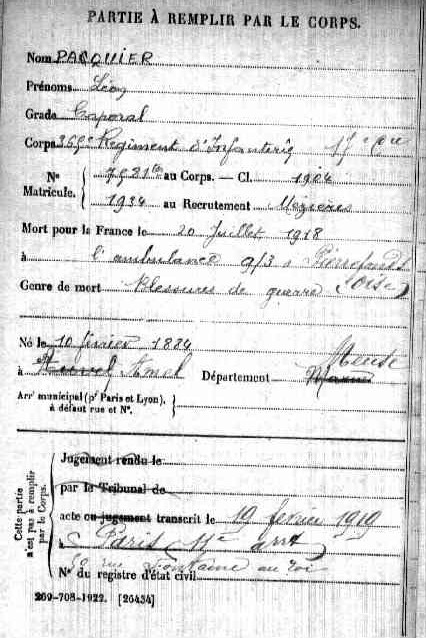 PARTIE À REMPLIR PAR LE CORPS.
Nom PACQUIER
Prénoms Léon
Grade Caporal
Corps 369e Regiment d'Infanterie 17e Cie
N° Matricule. { 7931bis au Corps. — Cl. 1904
1934 au Recrutement Mézières
Mort pour la France le 20 Juillet 1918
à l'ambulance 9/3 à Pierrefonds
Genre de mort Blessures de guerre (Oise)
Né le 10 février 1884
à Amel Département Meuse Marne
Arrt municipal (pr Paris et Lyon). à défaut rue et N°. }
Cette partie n'est pas à remplir par le Corps.
Jugement rendu le
par le Tribunal de
acte ou jugement transcrit le 19 février 1919
à Paris 11e arrt
90 rue Fontaine au Roi
N° du registre d'état civil
269-708-1922. [26434]